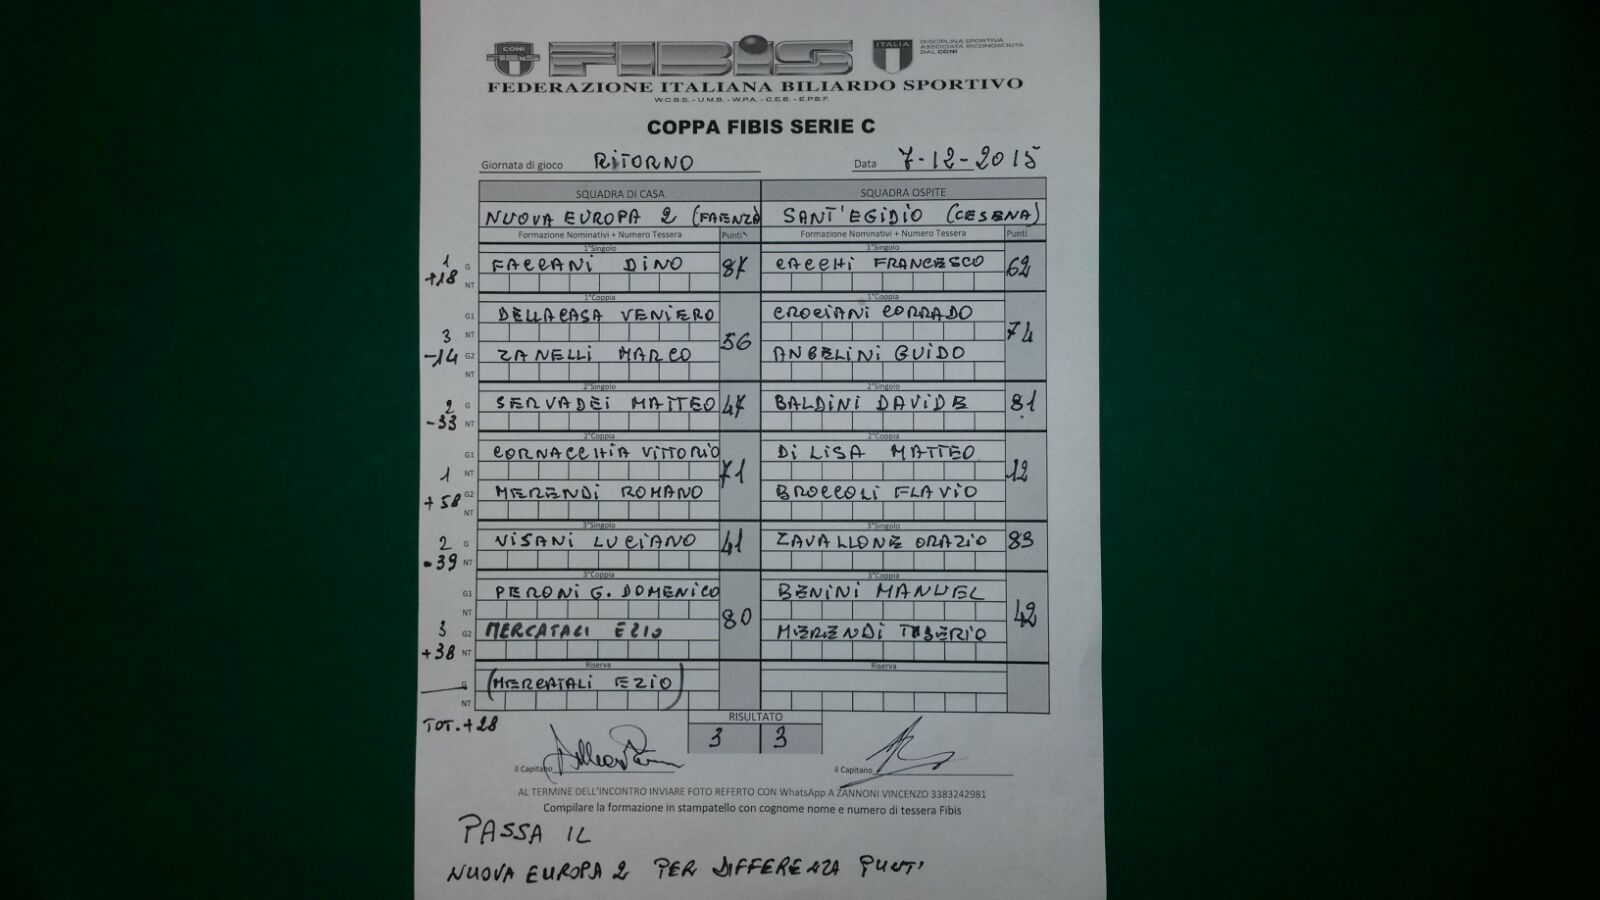 CONI
FIBIS
ITALIA
DISCIPLINA SPORTIVA
ASSOCIATA RICONOSCIUTA
DAL CONI
FEDERAZIONE ITALIANA BILIARDO SPORTIVO
W.C.B.S. - U.M.B. - W.P.A. - C.E.B. - E.P.B.F.
COPPA FIBIS SERIE C
Giornata di gioco RITORNO Data 7-12-2015
SQUADRA DI CASA SQUADRA OSPITE
NUOVA EUROPA 2 (FAENZA) SANT'EGIDIO (CESENA)
Formazione Nominativi + Numero Tessera Punti Formazione Nominativi + Numero Tessera Punti
1°Singolo 1°Singolo
1 G FACCANI DINO 87 CACCHI FRANCESCO 62
+18 NT
1°Coppia 1°Coppia
G1 DELLACASA VENIERO CROCIANI CORRADO
3 NT 56 74
-14 G2 ZANELLI MARCO ANGELINI GUIDO
NT
2°Singolo 2°Singolo
2 G SERVADEI MATTEO 47 BALDINI DAVIDE 81
-33 NT
2°Coppia 2°Coppia
G1 CORNACCHIA VITTORIO DI LISA MATTEO
1 NT 71 12
+58 G2 MERENDI ROMANO BROCCOLI FLAVIO
NT
3°Singolo 3°Singolo
2 G VISANI LUCIANO 41 ZAVALLONE ORAZIO 83
-39 NT
3°Coppia 3°Coppia
G1 PERONI G. DOMENICO BENINI MANUEL
NT 80 42
3 G2 MERCATALI EZIO MERENDI TIBERIO
+38 NT
Riserva Riserva
G (MERCATALI EZIO)
NT
TOT. +28 RISULTATO
3 3
il Capitano il Capitano
AL TERMINE DELL'INCONTRO INVIARE FOTO REFERTO CON WhatsApp A ZANNONI VINCENZO 3383242981
Compilare la formazione in stampatello con cognome nome e numero di tessera Fibis
PASSA IL
NUOVA EUROPA 2 PER DIFFERENZA PUNTI